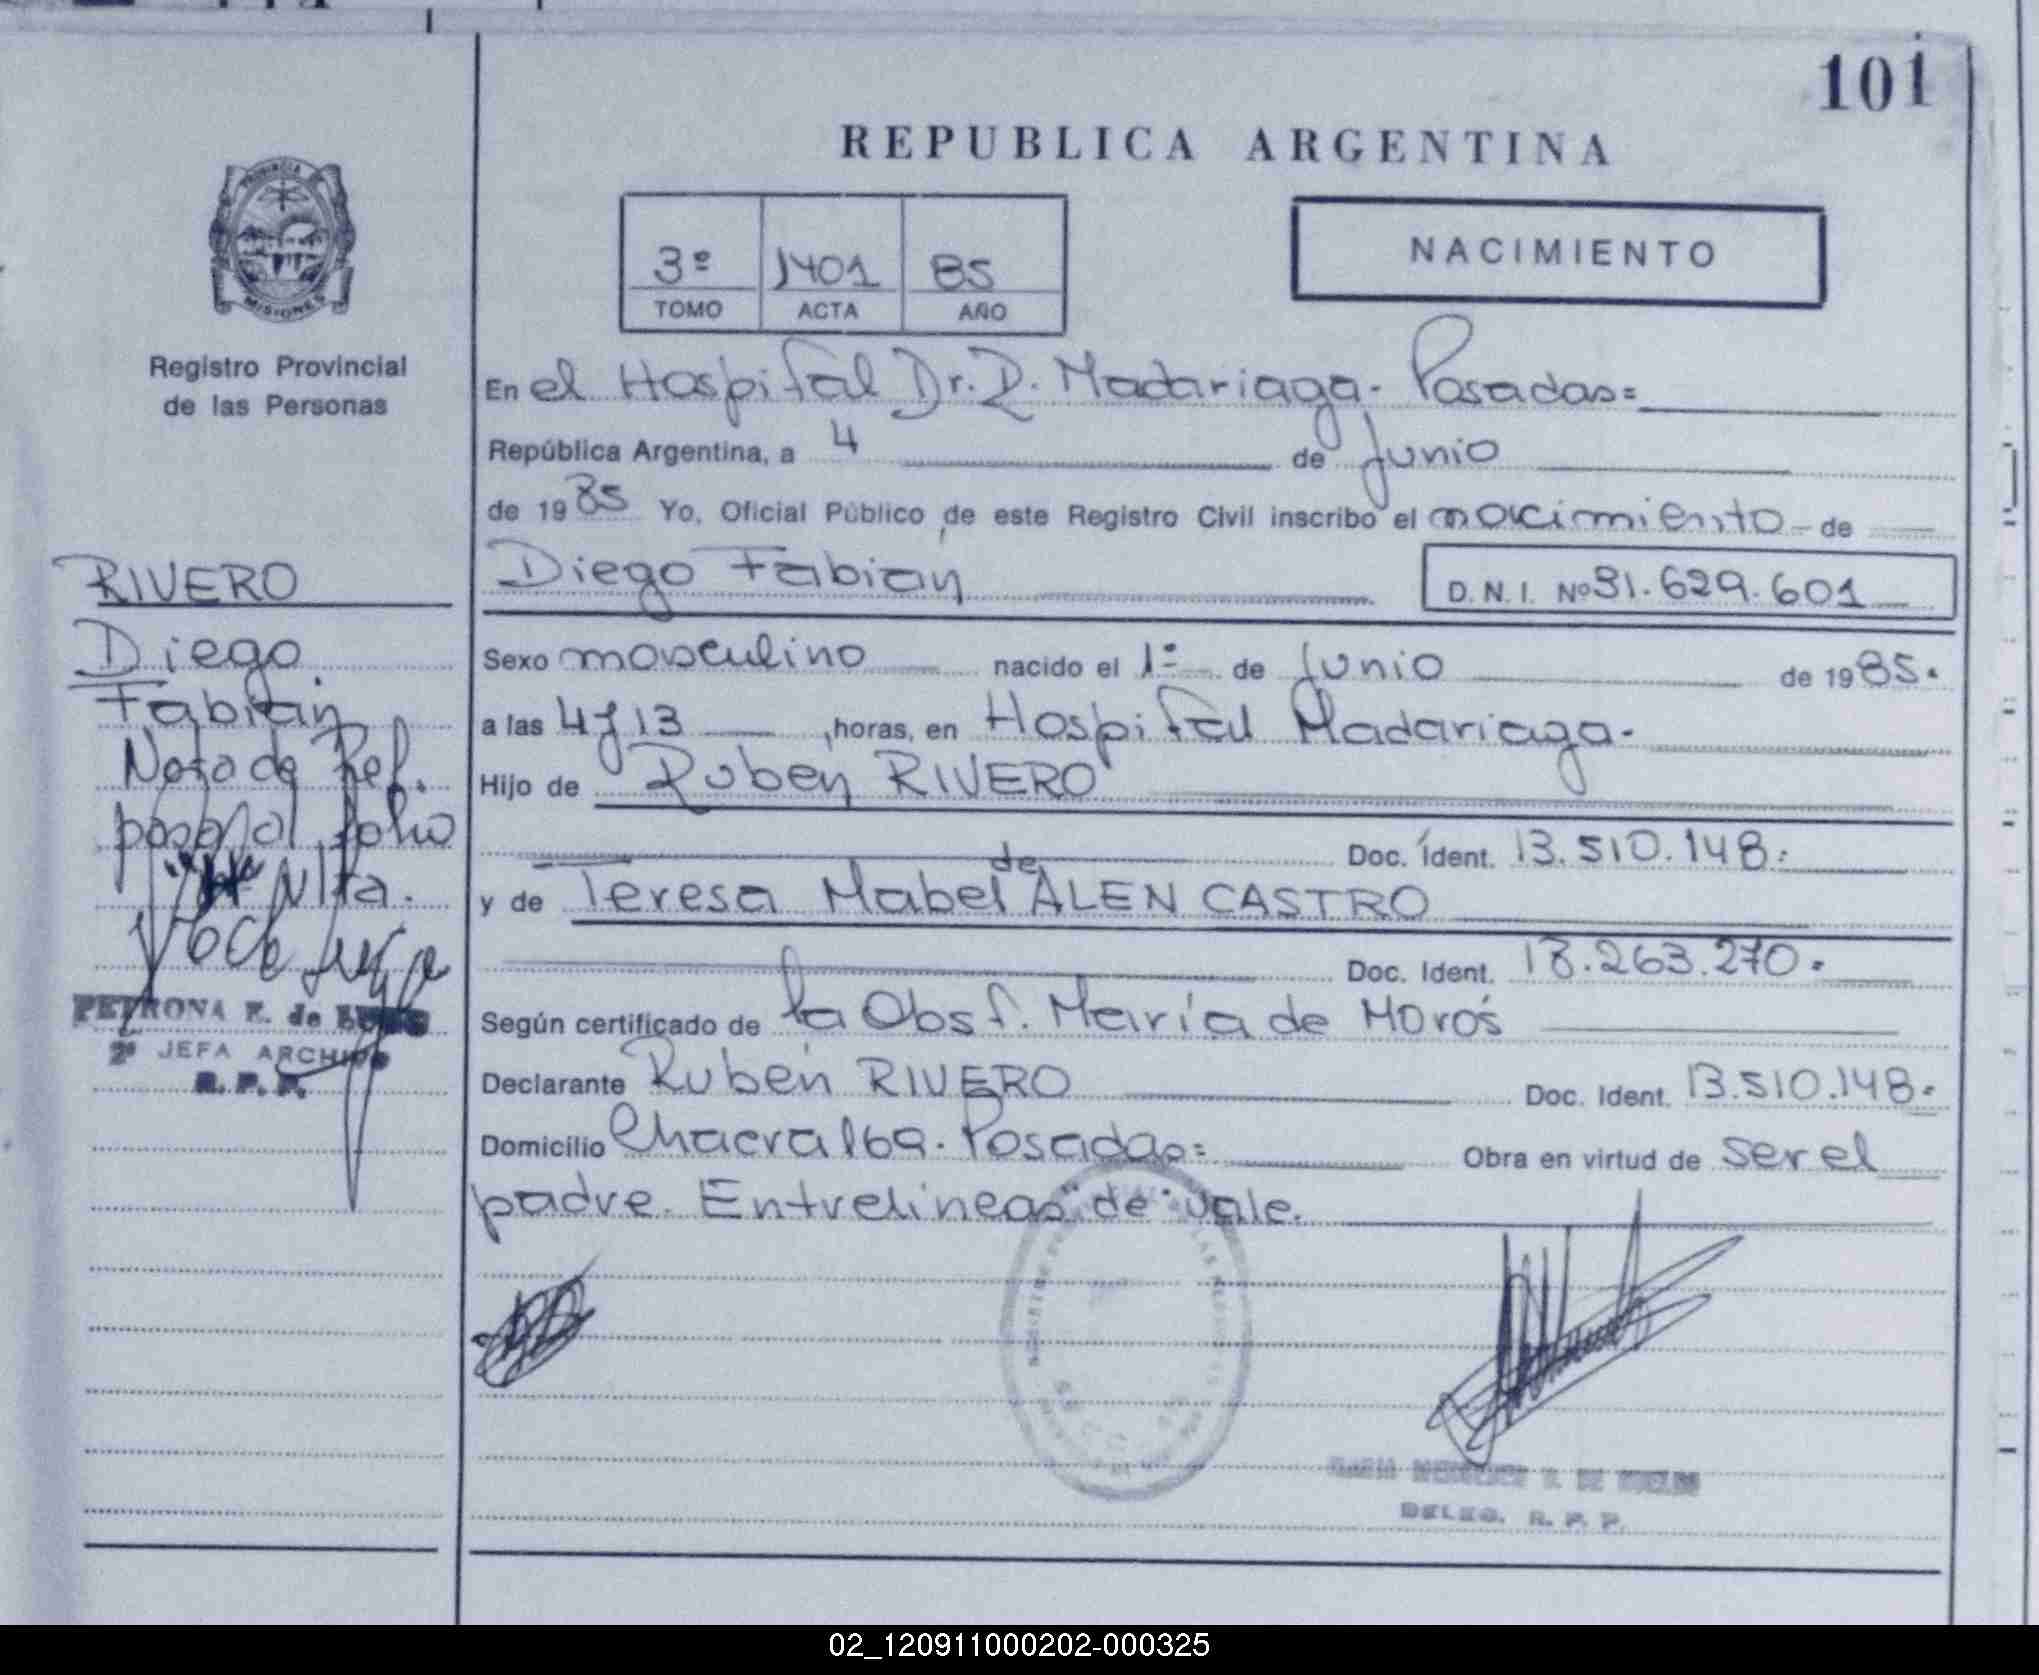 101
REPUBLICA ARGENTINA
PROVINCIA DE
MISIONES
Registro Provincial
de las Personas
3º 1401 85
TOMO ACTA AÑO
NACIMIENTO
En el Hospital Dr. R. Madariaga - Posadas=
República Argentina, a 4 de Junio
de 1985 Yo, Oficial Público de este Registro Civil inscribo el nacimiento de
Diego Fabián D. N. I. Nº 31.629.601
Sexo masculino nacido el 1º de Junio de 1985.
a las 4 y 13 horas, en Hospital Madariaga.
Hijo de Rubén RIVERO
Doc. Ident. 13.510.148.
y de Teresa Mabel de ALEN CASTRO
Doc. Ident. 18.263.270.
Según certificado de la Obst. María de Morós
Declarante Rubén RIVERO Doc. Ident. 13.510.148.
Domicilio Chacra 169. Posadas= Obra en virtud de ser el
padre. Entrelineas "de" vale.
RIVERO
Diego
Fabián
Nota de Ref.
pasa al folio
PETRONA E. de
2º JEFA ARCHIVO
R. P. P.
DELEG. R. P. P.
02_120911000202-000325